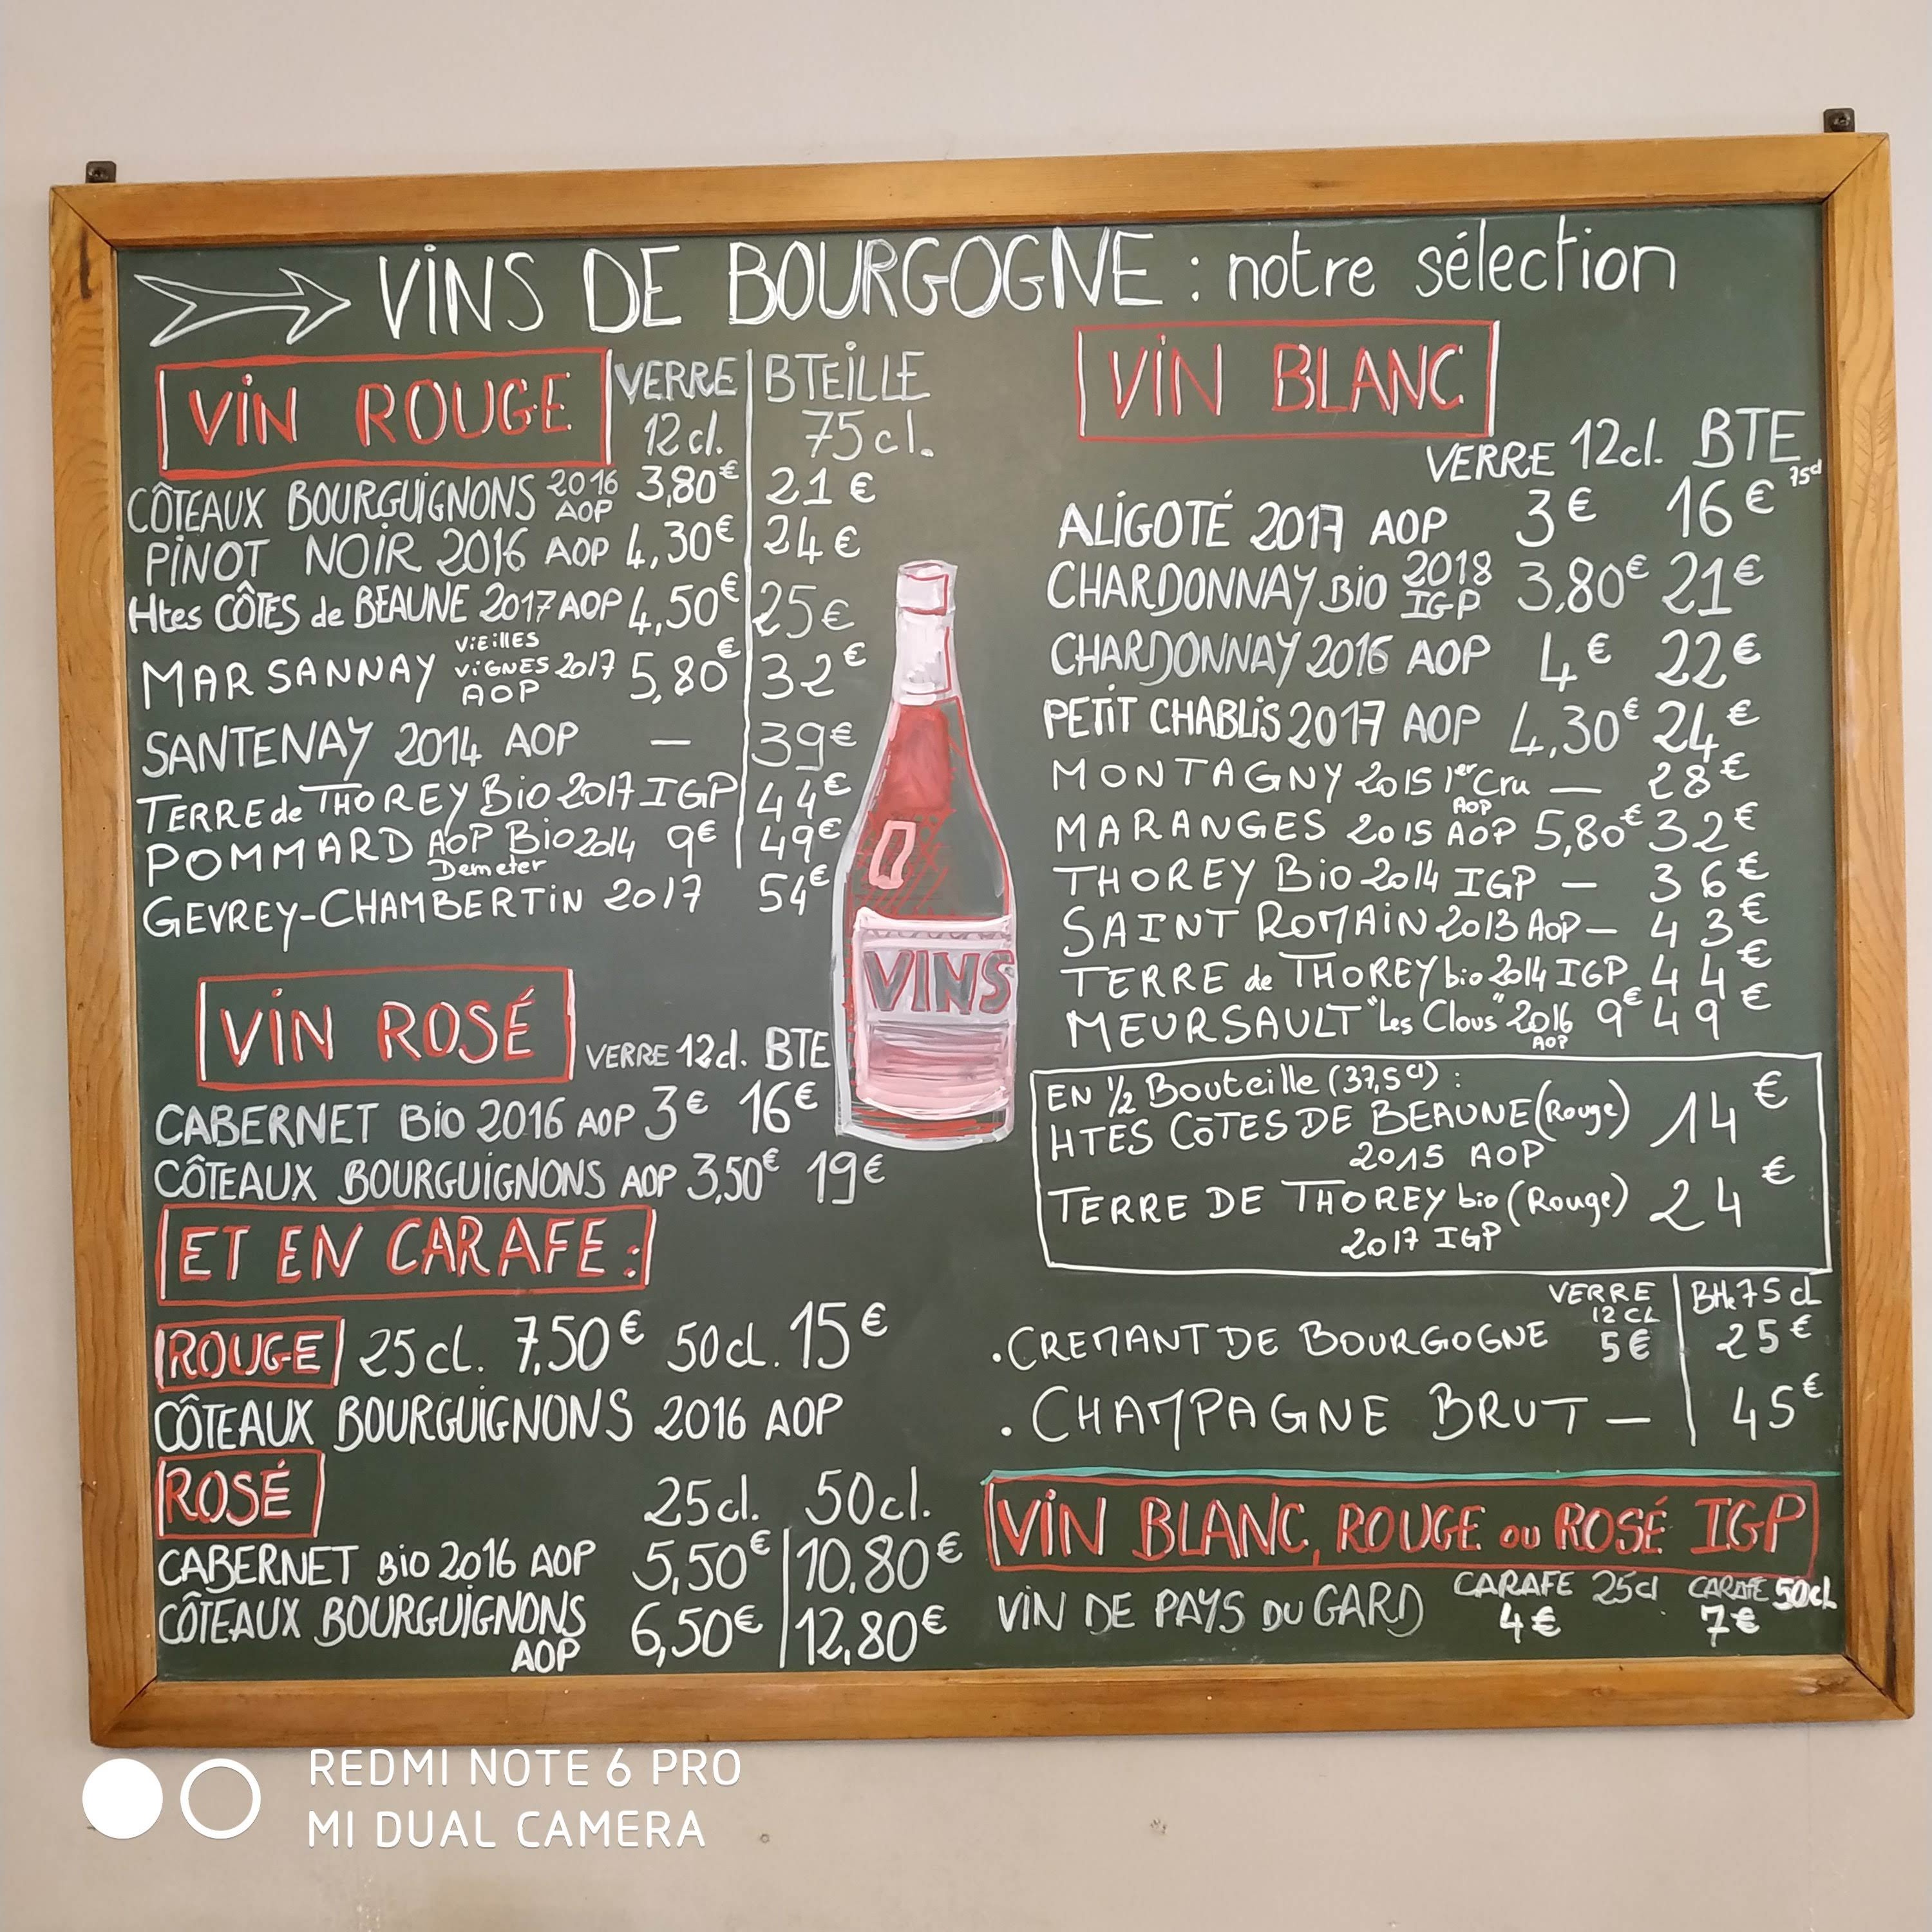 VINS DE BOURGOGNE : notre sélection
VIN ROUGE
VERRE 12cl. BTEILLE 75cl.
CÔTEAUX BOURGUIGNONS 2016 AOP 3,80€ 21€
PINOT NOIR 2016 AOP 4,30€ 24€
Htes CÔTES de BEAUNE 2017 AOP 4,50€ 25€
MARSANNAY VIEILLES VIGNES 2017 AOP 5,80€ 32€
SANTENAY 2014 AOP — 39€
TERRE de THOREY Bio 2017 IGP 44€
POMMARD AOP Bio 2014 9€ 49€
Demeter
GEVREY-CHAMBERTIN 2017 54€
VIN ROSÉ
VERRE 12cl. BTE
CABERNET Bio 2016 AOP 3€ 16€
CÔTEAUX BOURGUIGNONS AOP 3,50€ 19€
ET EN CARAFE :
ROUGE 25cl. 7,50€ 50cl. 15€
CÔTEAUX BOURGUIGNONS 2016 AOP
ROSÉ
25cl. 50cl.
CABERNET Bio 2016 AOP 5,50€ 10,80€
CÔTEAUX BOURGUIGNONS 6,50€ 12,80€
AOP
VINS
VIN BLANC
VERRE 12cl. BTE 75cl
ALIGOTÉ 2017 AOP 3€ 16€
CHARDONNAY Bio 2018 IGP 3,80€ 21€
CHARDONNAY 2016 AOP 4€ 22€
PETIT CHABLIS 2017 AOP 4,30€ 24€
MONTAGNY 2015 1er Cru — 28€
AOP
MARANGES 2015 AOP 5,80€ 32€
THOREY Bio 2014 IGP — 36€
SAINT ROMAIN 2013 AOP — 43€
TERRE de THOREY bio 2014 IGP 44€
MEURSAULT "Les Clous" 2016 9€ 49€
AOP
EN ½ Bouteille (37,5cl) :
HTES CÔTES DE BEAUNE (Rouge) 14€
2015 AOP
TERRE DE THOREY bio (Rouge) 24€
2017 IGP
VERRE 12CL Btle 75cl
. CREMANT DE BOURGOGNE 5€ 25€
. CHAMPAGNE BRUT — 45€
VIN BLANC, ROUGE ou ROSÉ IGP
CARAFE 25cl CARAFE 50cl
VIN DE PAYS DU GARD 4€ 7€
REDMI NOTE 6 PRO
MI DUAL CAMERA